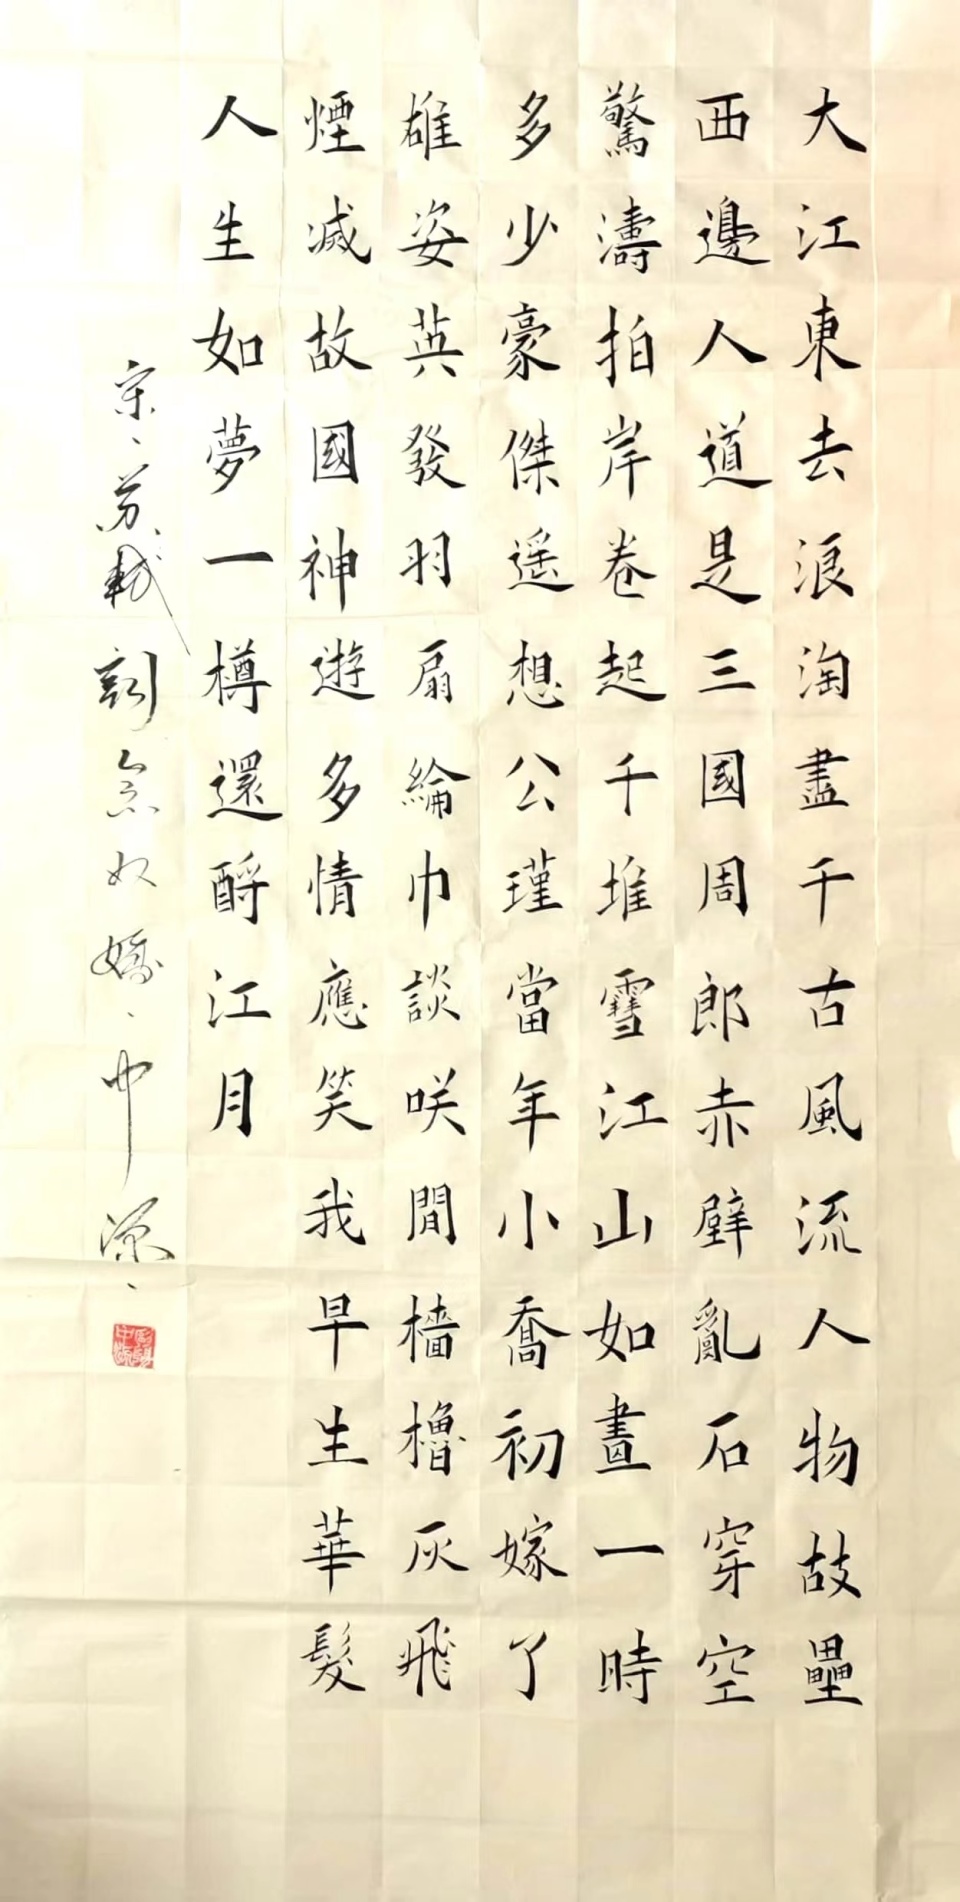 大江東去浪淘盡千古風流人物故壘
西邊人道是三國周郎赤壁亂石穿空
驚濤拍岸卷起千堆雪江山如畫一時
多少豪傑遥想公瑾當年小喬初嫁了
雄姿英發羽扇綸巾談咲間檣櫓灰飛
煙滅故國神遊多情應笑我早生華髮
人生如夢一樽還酹江月
宋、蘇軾詞念奴嬌、中源、